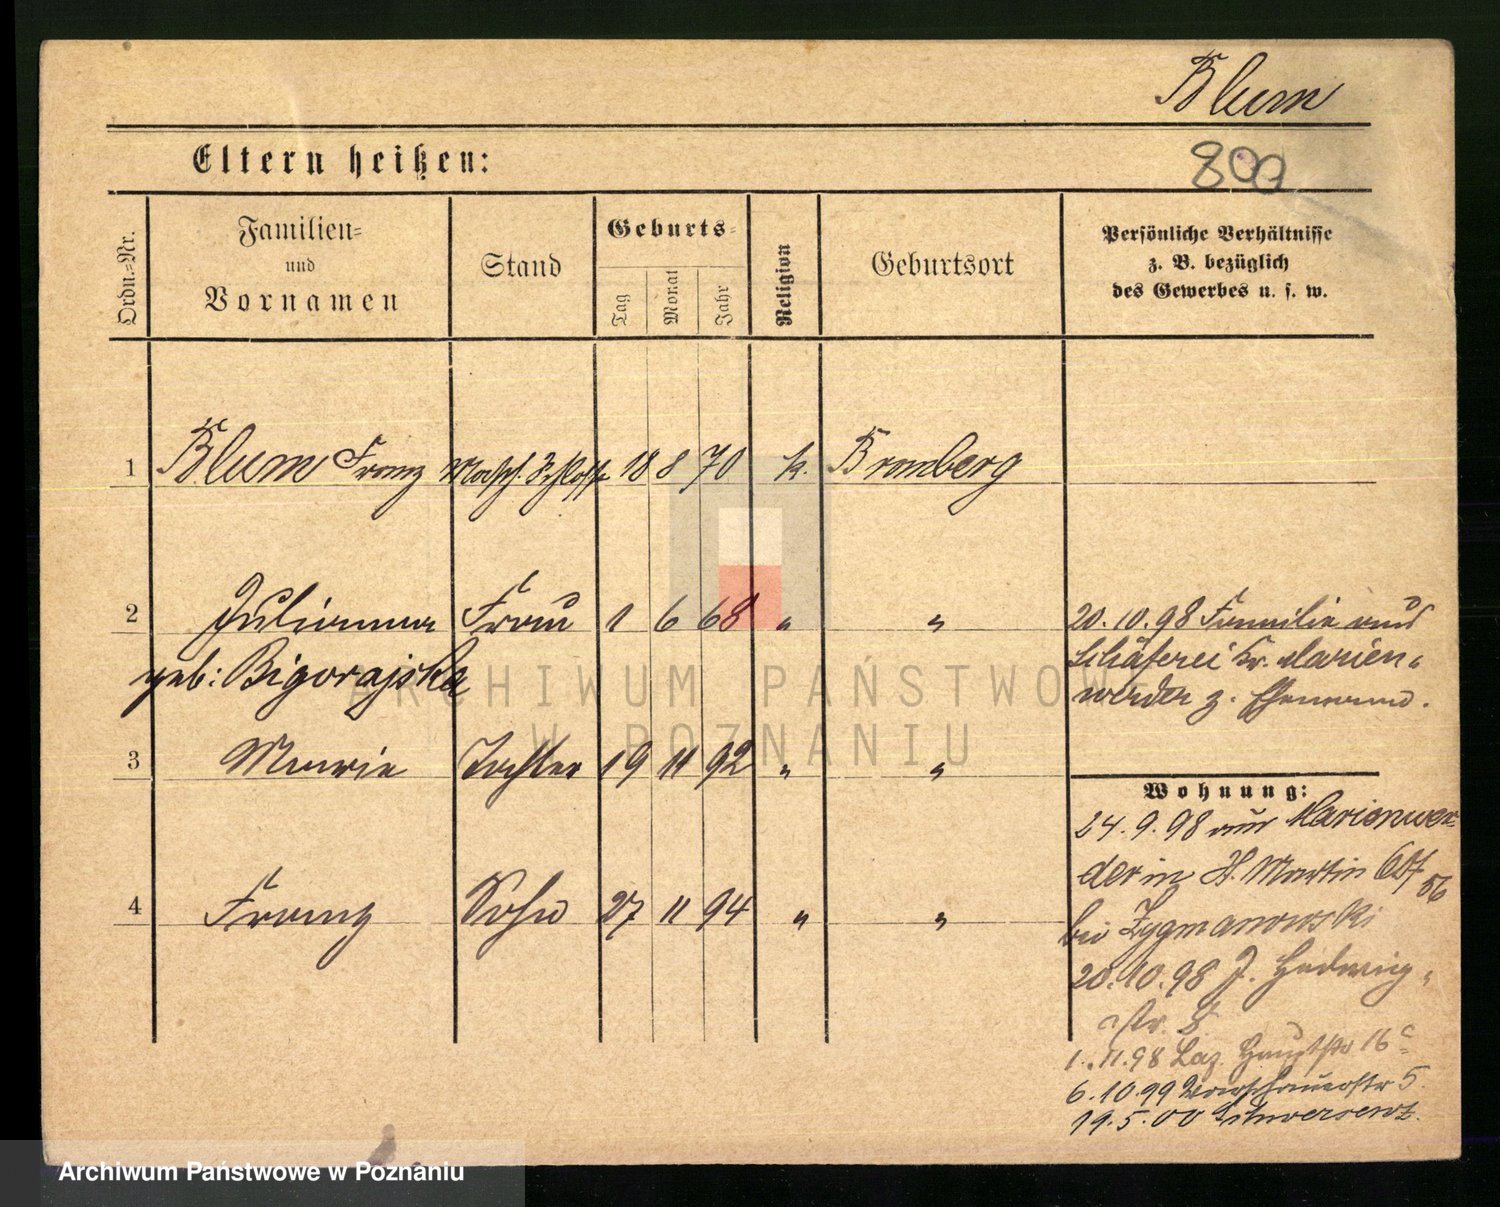 Blum
Eltern heißen:
800
Ordn.-Nr.
Familien-
und
Vornamen
Stand
Geburts-
Tag
Monat
Jahr
Religion
Geburtsort
Persönliche Verhältnisse
z. B. bezüglich
des Gewerbes u. s. w.
1 Blum Franz Masch. Schlosser 18 8 70 k. Bromberg
2 Julianna Frau 1 6 68 " "
geb: Bigorajska
20.10.98 Familie aus
Schäferei Kr. Marien-
werder z. Ehemann.
3 Marie Tochter 19 11 92 " "
4 Franz Sohn 27 11 94 " "
Wohnung:
24.9.98 aus Marienwer-
der in St. Martin 56
bei Zygmanowski
20.10.98 J. Hedwig-
str. 8.
1.11.98 Laz. Hauptstr 16c
6.10.99 Warschauerstr 5.
19.5.00 Schwersenz.
ARCHIWUM PAŃSTWOWE
W POZNANIU
Archiwum Państwowe w Poznaniu